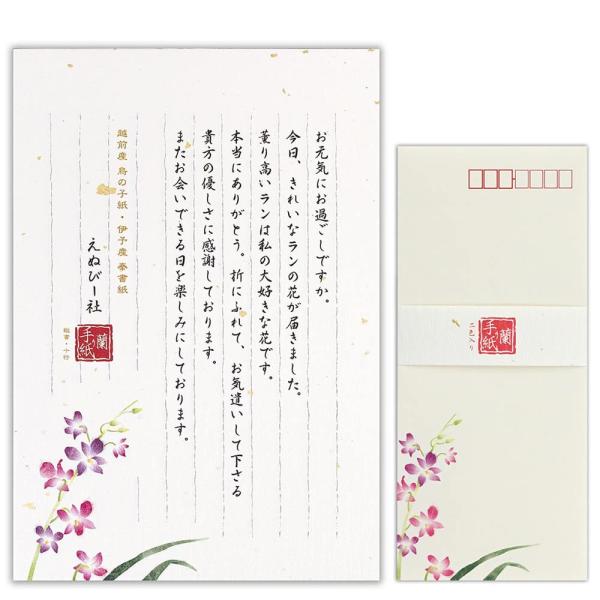 お元気にお過ごしですか。
今日、きれいなランの花が届きました。
薫り高いランは私の大好きな花です。
本当にありがとう。折にふれて、お気遣いして下さる
貴方の優しさに感謝しております。
またお会いできる日を楽しみにしております。
越前産 鳥の子紙・伊予産 奉書紙
えぬびー社
蘭
手紙
縦書・十行
蘭
手紙
二色入り